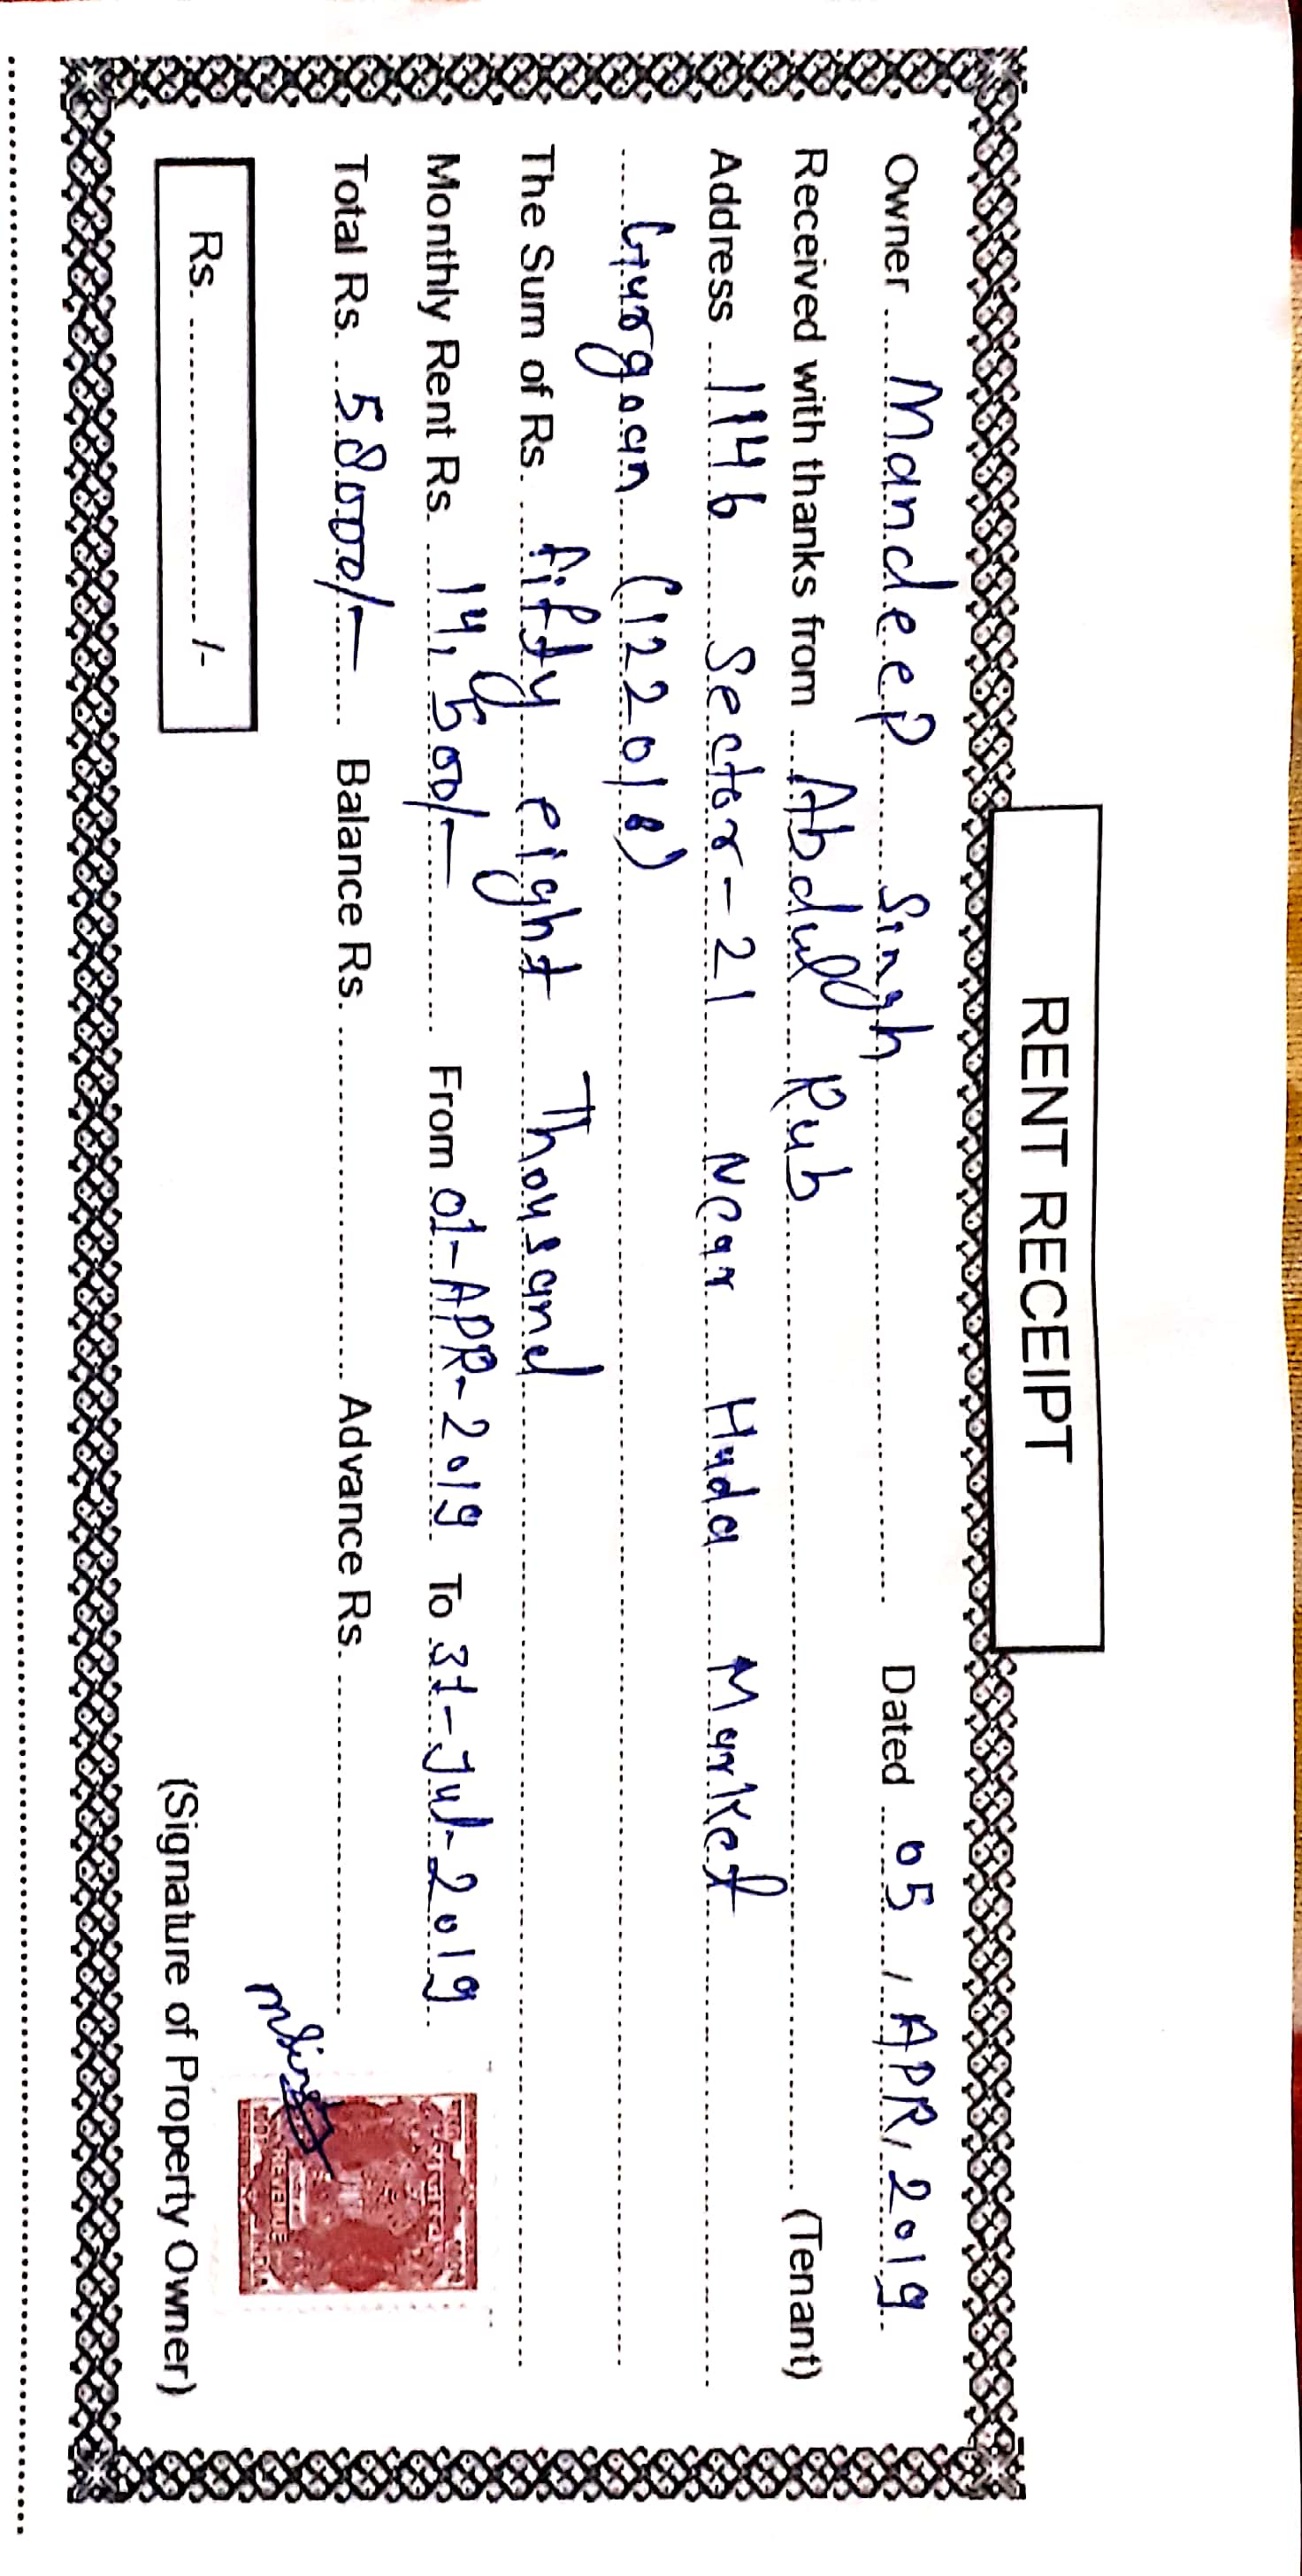 RENT RECEIPT
Owner Mandeep Singh Dated 05, APR, 2019
Received with thanks from Abdul Rub (Tenant)
Address 1146 Sector-21 Near Huda Market
Gurgoan (122016)
The Sum of Rs. fifty eight Thousand
Monthly Rent Rs. 14,500/- From 01-APR-2019 To 31-Jul-2019
Total Rs. 58000/- Balance Rs. Advance Rs.
MSingh
REVENUE
Rs. /-
(Signature of Property Owner)